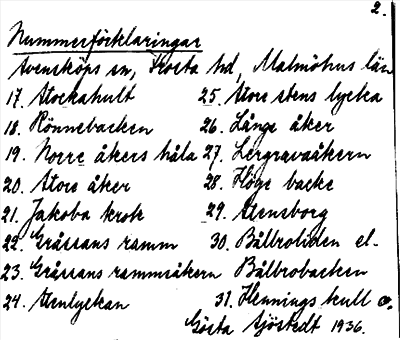 2.
Nummerförklaringar
Avensköps sn, Frosta hd, Malmöhus län
17. Stockahult 25. Store stens lycka
18. Rönnebacken 26. Långe åker
19. Norre åkers håla 27. Lergravaåkern
20. Store åker 28. Höge backe
21. Jakobs krok 29. Stensborg
22. Gråssans ramm 30. Bålbroliden el.
23. Gråssans rammsåkern Bålbrobacken
24. Stenlyckan 31. Hennings kull o.
Gösta Sjöstedt 1936.